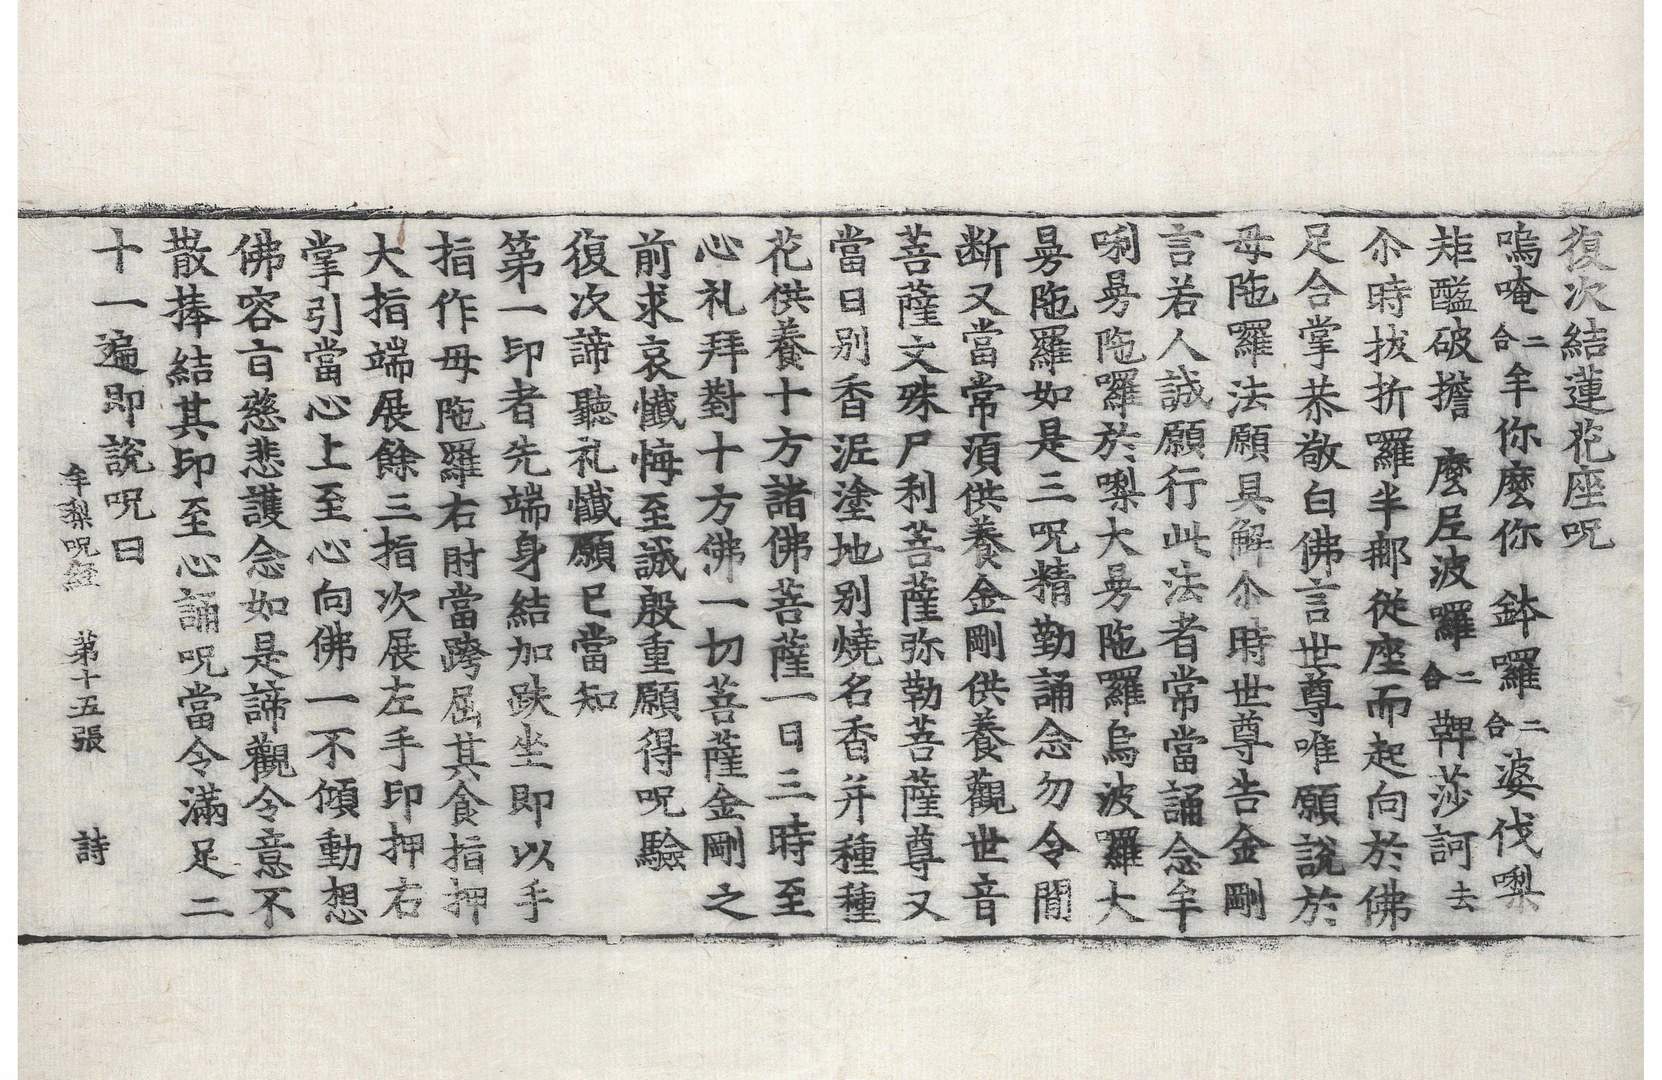 復次結蓮花座呪
嗚唵二合牟你麽你鉢囉二合婆伐㗚
矩醯破擔麽尼波囉二合鞞莎訶去
尒時拔折羅半那從座而起向於佛
足合掌恭敬白佛言世尊唯願說於
母陁囉法願具解尒時世尊告金剛
言若人誠願行此法者常當誦念牟
唎曼陁囉於㗚大曼陁羅烏波囉大
曼陁羅如是三呪精勤誦念勿令閒
断又當常湏供養金剛供養觀世音
菩薩文殊尸利菩薩弥勒菩薩尊又
當日別香泥塗地別燒名香并種種
花供養十方諸佛菩薩一日三時至
心礼拜對十方佛一切菩薩金剛之
前求哀懺悔至誠殷重願得呪驗
復次諦聽礼懺願已當知
第一印者先端身結加趺坐即以手
指作母陁羅右肘當跨屈其食指押
大指端展餘三指次展左手印押右
掌引當心上至心向佛一不傾動想
佛容㒵慈悲護念如是諦觀令意不
散捧結其印至心誦呪當令滿足二
十一遍即說呪曰
牟梨呪経 第十五張 詩